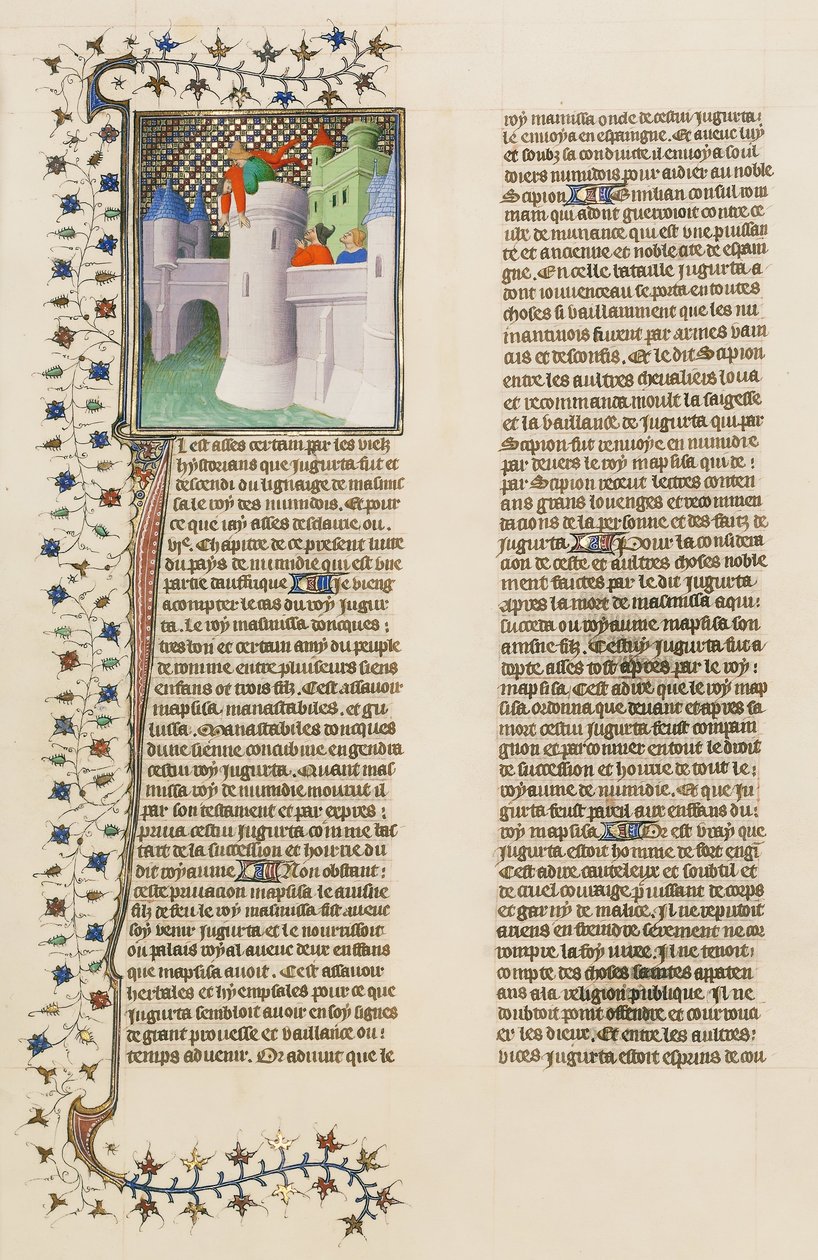 Il est asses certain par les vielz
hystorians que Jugurta fut et
descendi du lignaige de masinis
sa le roy des numidois. Et pour
ce que iay asses desclairie ou.
vie. Chapitre de ce present liure
du pays de numidie qui est vne
partie dauffrique Je vieng
a compter le cas du roy Jugur
ta. Le roy masinissa doncques:
tres bon et certain amy du peuple
de romme entre pluiseurs siens
enfans ot trois filz. Cest assauoir
mapsisa manastabiles. et gu
lussa. Manastabiles doncques
dune sienne concubine engendra
cestui roy Jugurta. Quant mas
inissa roy de numidie mourut il
par son testament et par expres:
priua cestui Jugurta comme bas
tart de la succession et hoirie du
dit royaume Non obstant:
ceste priuacion mapsisa le aisne
filz de feu le roy masinissa fist auec
soy venir Jugurta et le nourrissoit
ou palais royal auecc deux enffans
que mapsisa auoit. Cest assauoir
herbales et hyempsales pour ce que
Jugurta sembloit auoir en soy signes
de grant prouesse et vaillance ou:
temps aduenir. Or aduint que le
roy manissa onde de cestui Jugurta:
le enuoya en espaingne. Et auecc luy
et soubz sa conduicte il enuoya soul
doiers numidois pour aidier au noble
Scipion Emilian consul rom
main qui adont guerroioit contre ce
ulx de numance qui est vne puissan
te et ancienne et noble cite de espain
gne. En celle bataille Jugurta a
dont iouuenceau se porta en toutes
choses si vaillamment que les nu
mantinois furent par armes vain
cus et desconfis. Et le dit Scipion
entre les aultres cheualiers loua
et recommanda moult la saigesse
et la vaillance de Jugurta qui par
Scipion fut renuoye en numidie
par deuers le roy mapsisa qui de:
par Scipion receut lectres conten
ans grans louenges et recommen
dacions de la personne et des faitz de
Jugurta Pour la considera
cion de ceste et aultres choses noble
ment faictes par le dit Jugurta
apres la mort de masinissa a qui:
succeda ou royaume mapsisa son
ainsne filz. Cestuy Jugurta fut a
dopte asses tost apres par le roy:
mapsisa. Cest adire que le roy map
sisa ordonna que deuant et apres sa
mort cestui Jugurta feust compain
gnon et parconnier en tout le droit
de succession et hoirie de tout le:
royaume de numidie. Et que Ju
gurta feust pareil aux enffans du:
roy mapsisa Or est vray que
Jugurta estoit homme de fort engi
Cest adire cauteleux et soubtil et
de cruel couraige puissant de corps
et garny de malice. Il ne reputoit
a riens en freindre serement ne cor
rompre la foy iuree. Il ne tenoit:
compte des choses saintes apparten
ans a la religion publique. Il ne
doubtoit point offendre et courrouc
er les dieux. Et entre les aultres:
vices Jugurta estoit esprins de cou